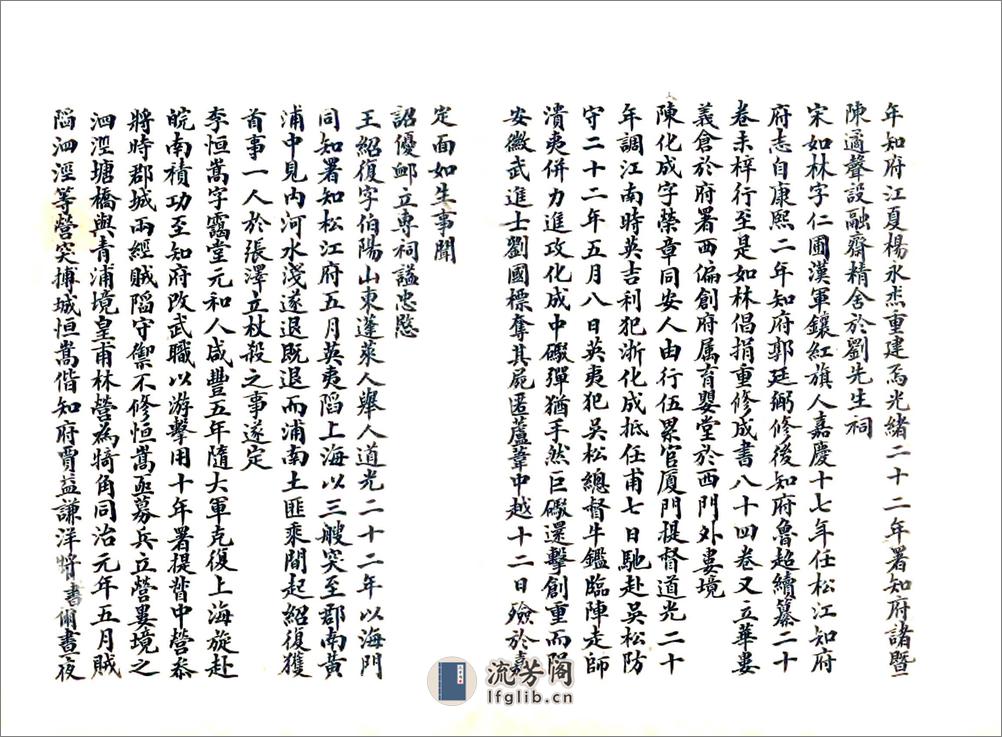 年知府江夏楊永杰重建焉光緒二十二年署知府諸暨
陳遹聲設融齋精舍於劉先生祠
宋如林字仁圃漢軍鑲紅旗人嘉慶十七年任松江知府
府志自康熙二年知府郭廷弼修後知府魯超續纂二十
卷未梓行至是如林倡捐重修成書八十四卷又立華婁
義倉於府署西偏創府属育嬰堂於西門外婁境
陳化成字榮章同安人由行伍累官厦門提督道光二十
年調江南時英吉利犯浙化成抵任甫七日馳赴吳松防
守二十二年五月八日英夷犯吳松總督牛鑑臨陣走師
潰夷併力進攻化成中礮彈猶手然巨礮還擊創重而隕
安徽武進士劉國標奪其屍匿蘆葦中越十二日殮於嘉
定面如生事聞
詔優卹立專祠謚忠愍
王紹復字伯陽山東蓬萊人舉人道光二十二年以海門
同知署知松江府五月英夷陷上海以三艘突至郡南黃
浦中見內河水淺遂退既退而浦南土匪乘間起紹復獲
首事一人於張澤立杖殺之事遂定
李恒嵩字靄堂元和人咸豐五年隨大軍克復上海旋赴
皖南積功至知府改武職以游擊用十年署提督中營叅
將時郡城兩經賊陷守禦不修恒嵩亟募兵立營婁境之
泗涇塘橋與青浦境皇甫林營為犄角同治元年五月賊
陷泗涇等營突搏城恒嵩偕知府賈益謙洋將書爾晝夜
流芳阁
lfglib.cn